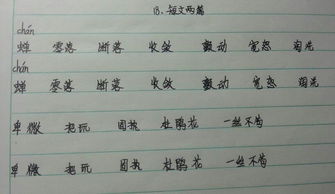 13、短文两篇
chán
蝉 零落 断落 收敛 颤动 宽恕 淘洗
chán
蝉 零落 断落 收敛 颤动 宽恕 淘洗
卑微 把玩 固执 杜鹃花 一丝不苟
卑微 把玩 固执 杜鹃花 一丝不苟